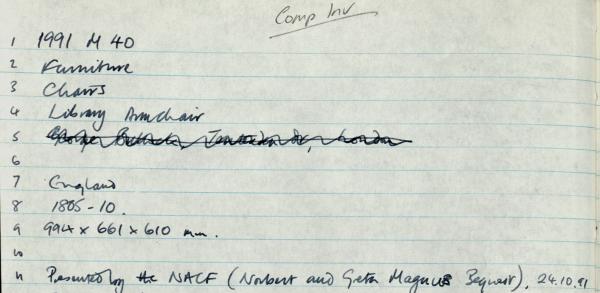 Comp Inv
1 1991 M 40
2 Furniture
3 Chairs
4 Library Armchair
5 London
6
7 England
8 1805-10.
9 994 x 661 x 610 mm.
10
11 Presented by the NACF (Norbert and Greta Magnus Bequest), 24.10.91